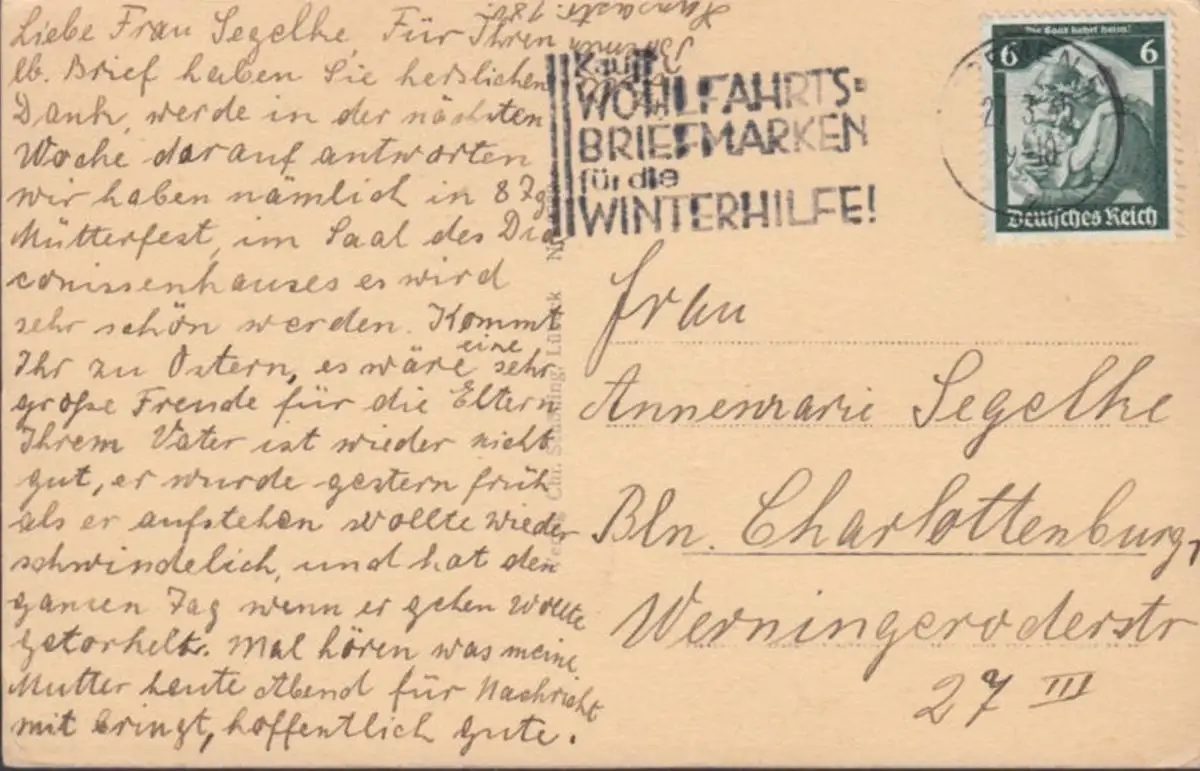 Liebe Frau Segelke, Für Ihren
lb. Brief haben Sie herslichen
Dank, werde in der nächsten
Woche darauf antworten
wir haben nämlich in 8 Tg
Mütterfest, im Saal des Dia
conissenhauses es wird
sehr schön werden. Kommt
Ihr zu Ostern, es wäre eine sehr
große Freude für die Eltern
Ihrem Vater ist wieder nicht
gut, er wurde gestern früh
als er aufstehen wollte wieder
schwindelich, und hat den
ganzen Tag wenn er gehen wollte
getorkelt. Mal hören was meine
Mutter heute Abend für Nachricht
mit bringt, hoffentlich gute.
Kauft
WOHLFAHRTS-
BRIEFMARKEN
für die
WINTERHILFE!
Die Saar kehrt heim!
6 6
Deutsches Reich
Chr. Lübeck
Frau
Annemarie Segelke
Bln. Charlottenburg,
Werningeroderstr
27 III